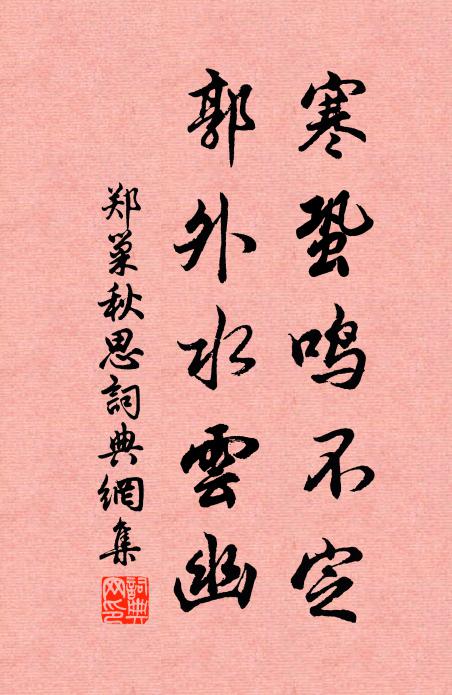 寒蛩鸣不定
郭外水雲幽
郑巢秋思詞典網集
詞典网印